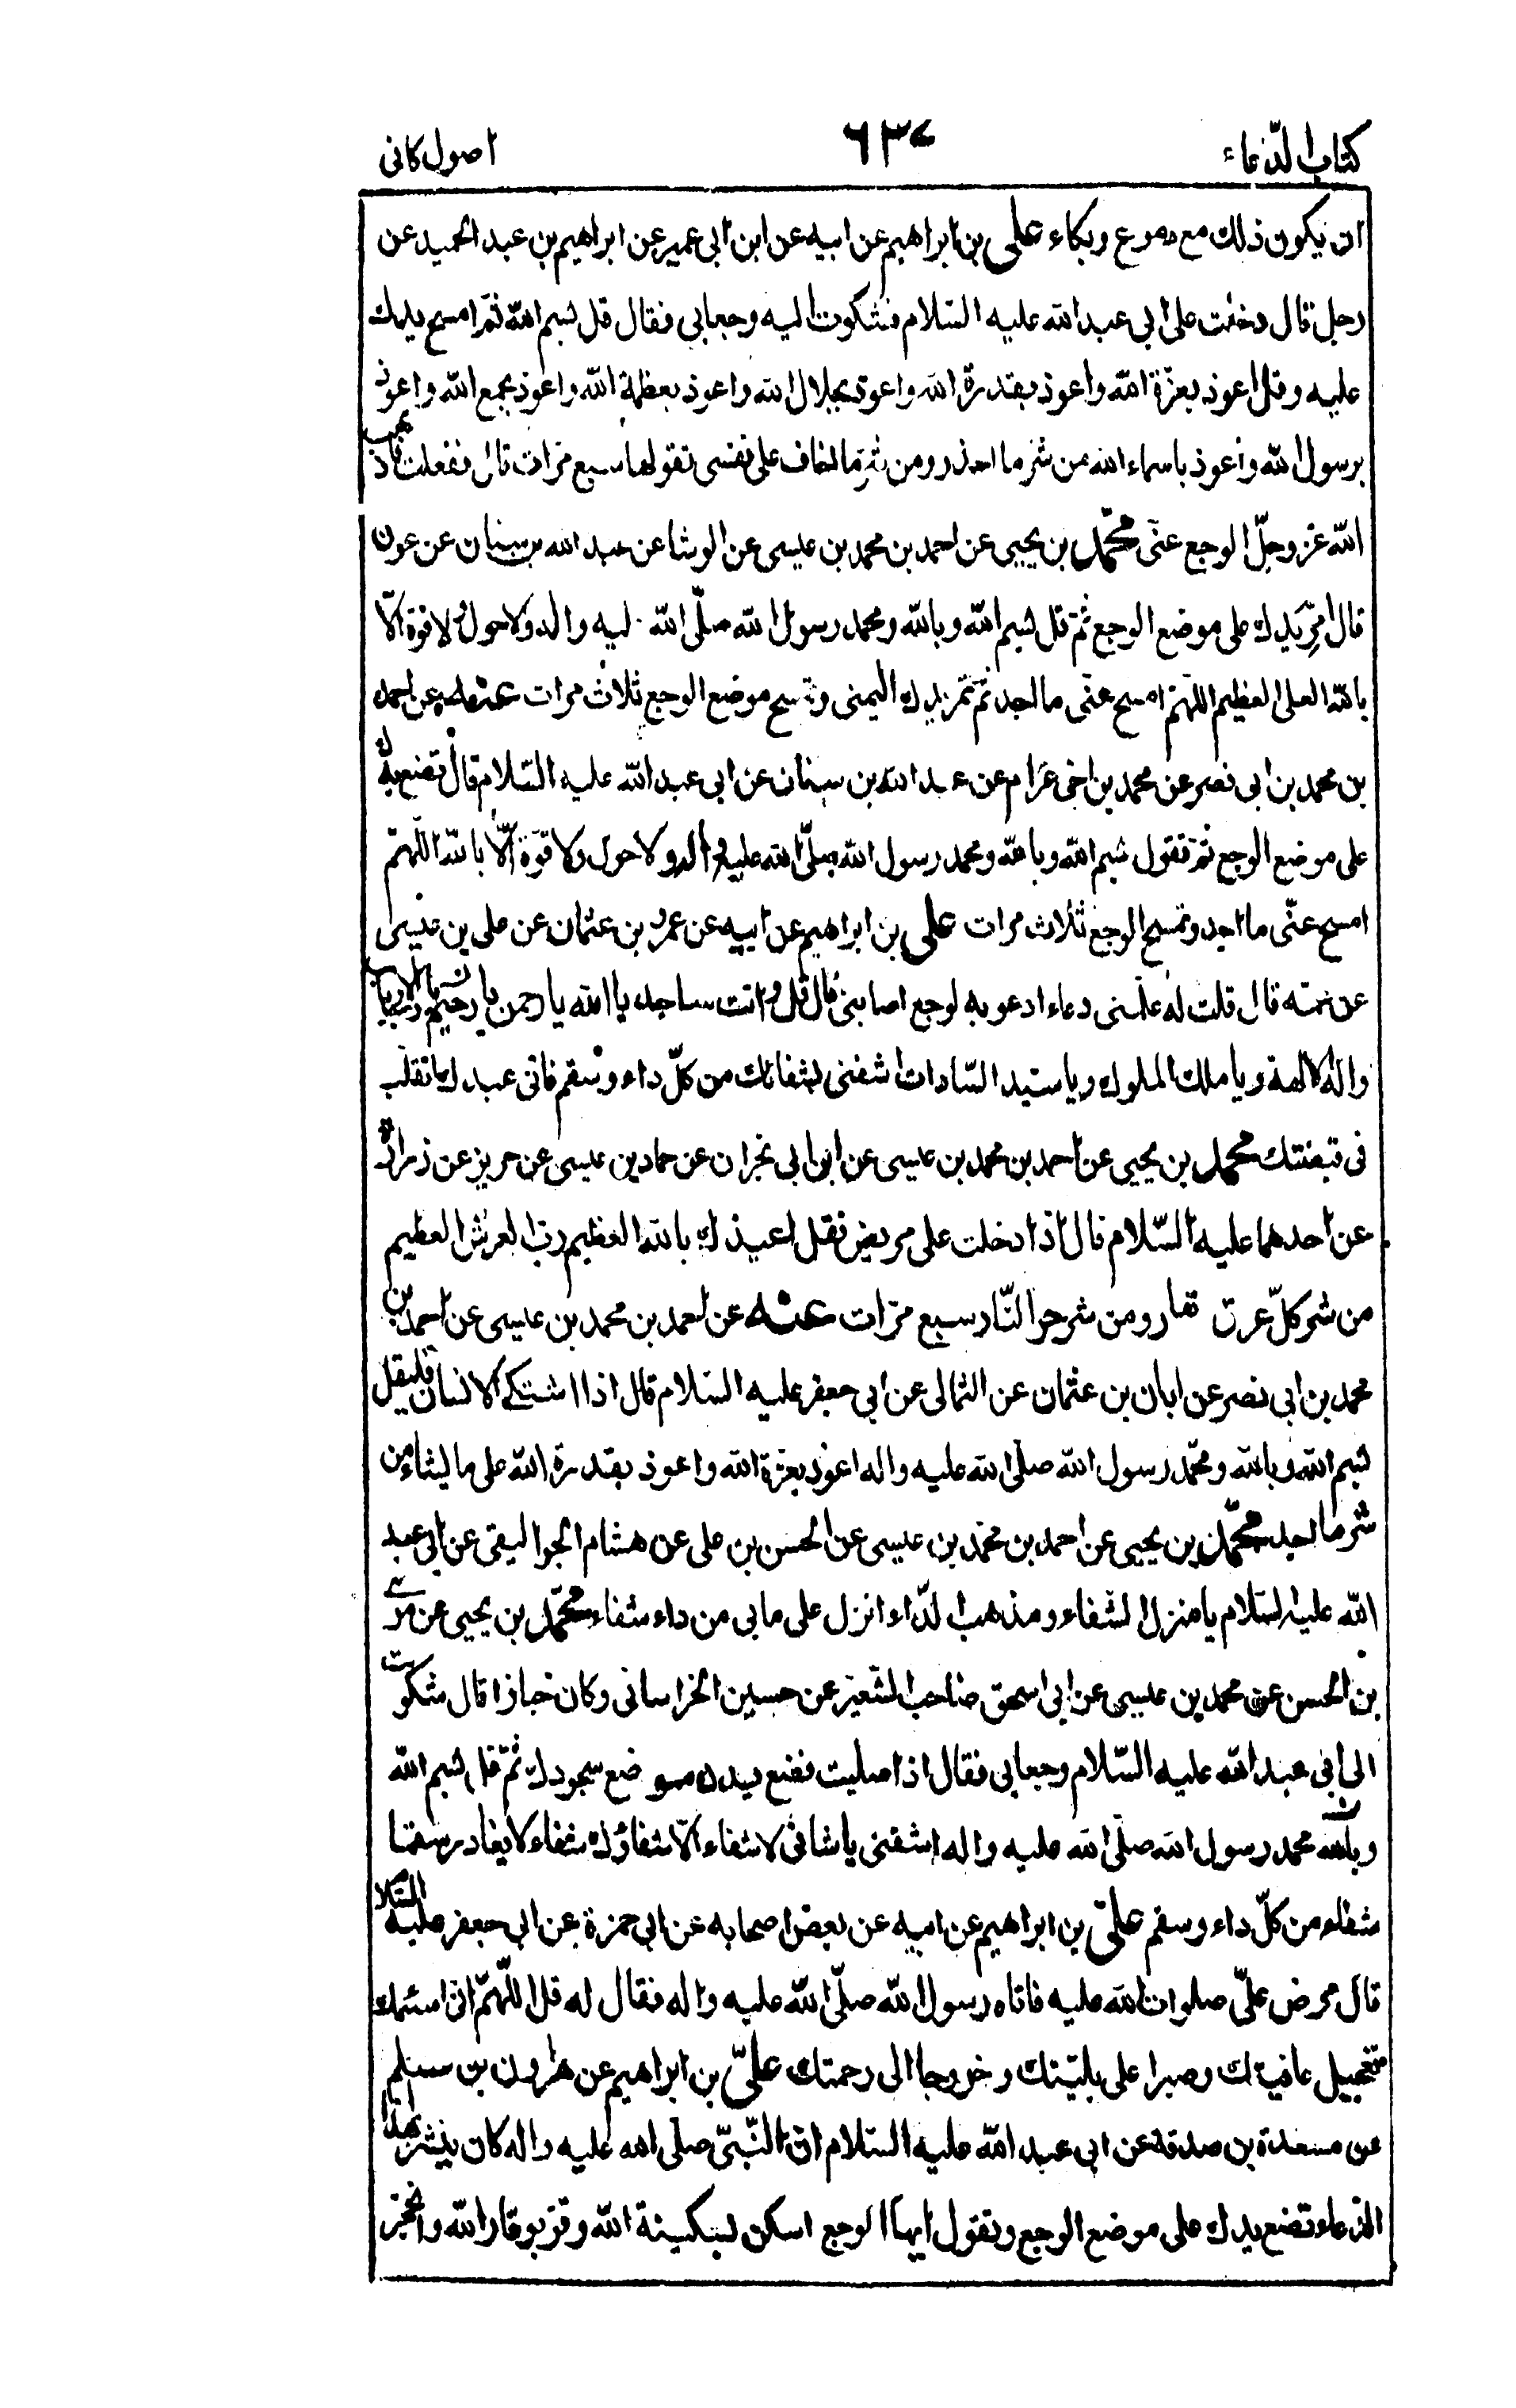 كتاب الدّعاء ٦٣٧ اصول كافى
ان يكون ذلك مع دموع وبكاء على بن ابراهيم عن ابيه عن ابن ابى عمير عن ابراهيم بن عبد الحميد عن
رجل قال دخلت على ابى عبد الله عليه السّلام فشكوت اليه وجعا بى فقال قل بسم الله ثمّ امسح يدك
عليه وقل اعوذ بعزّة الله واعوذ بقدرة الله واعوذ بجلال الله واعوذ بعظمة الله واعوذ بجمع الله واعوذ
برسول الله واعوذ باسماء الله من شرّ ما احذر ومن شرّ ما اخاف على نفسى تقولها سبع مرّات قال ففعلت فاذهب
الله عزّ وجلّ الوجع عنّى محمّد بن يحيى عن احمد بن محمد بن عيسى عن الوشا عن عبد الله بن سنان عن عون
قال امرّ يدك على موضع الوجع ثمّ قل بسم الله وبالله ومحمد رسول الله صلّى الله عليه واله ولا حول ولا قوة الّا
بالله العلى العظيم اللهمّ امسح عنّى ما اجد ثمّ تمرّ يدك اليمنى وتمسح موضع الوجع ثلاث مرات عنه عن احمد
بن محمد بن ابى نصر عن محمد بن اخى غرام عن عبد الله بن سنان عن ابى عبد الله عليه السّلام قال تضع يدك
على موضع الوجع ثمّ تقول بسم الله وبالله ومحمد رسول الله صلّى الله عليه واله ولا حول ولا قوّة الّا بالله اللّهمّ
امسح عنّى ما اجد وتمسح الوجع ثلاث مرات على بن ابراهيم عن ابيه عن عمرو بن عثمان عن على بن عيسى
عن عمّه قال قلت له علّمنى دعاء ادعو به لوجع اصابنى قال قل وانت ساجد يا الله يا رحمن يا رحيم يا ربّ الارباب
واله الالهة ويا ملك الملوك ويا سيّد السّادات اشفنى بشفائك من كلّ داء وسقم فانى عبدك اتقلّب
فى قبضتك محمّد بن يحيى عن احمد بن محمد بن عيسى عن ابن ابى نجران عن حماد بن عيسى عن حريز عن زرارة
عن احدهما عليه السّلام قال اذا دخلت على مريض فقل اعيذك بالله العظيم ربّ العرش العظيم
من شر كلّ عرق نفار ومن شر حرّ النّار سبع مرّات عنه عن احمد بن محمد بن عيسى عن احمد بن
محمد بن ابى نصر عن ابان بن عثمان عن الثمالى عن ابى جعفر عليه السّلام قال اذا اشتكى الانسان فليقل
بسم الله وبالله ومحمّد رسول الله صلّى الله عليه واله اعوذ بعزّة الله واعوذ بقدرة الله على ما يشاء من
شرّ ما اجد محمّد بن يحيى عن احمد بن محمّد بن عيسى عن الحسن بن على عن هشام الجواليقى عن ابى عبد
الله عليه السّلام يا منزل الشفاء ومذهب الدّاء انزل على ما بى من داء شفاء محمّد بن يحيى عن موسى
بن الحسن عن محمد بن عيسى عن ابى اسحق صاحب الشّعير عن حسين الخراسانى وكان خبازا قال شكوت
الى ابى عبد الله عليه السّلام وجعا بى فقال اذا صليت فضع يدك موضع سجودك ثمّ قل بسم الله
وبالله محمد رسول الله صلّى الله عليه واله اشفنى يا شافى لا شفاء الّا شفاؤك شفاء لا يغادر سقما
شفاء من كلّ داء وسقم علىّ بن ابراهيم عن ابيه عن بعض اصحابه عن ابى حمزة عن ابى جعفر عليه السّلام
قال مرض علىّ صلوات الله عليه فاتاه رسول الله صلّى الله عليه واله فقال له قل اللّهمّ انى اسئلك
تعجيل عافيتك وصبرا على بليّتك وخروجا الى رحمتك علىّ بن ابراهيم عن هارون بن مسلم
عن مسعدة بن صدقة عن ابى عبد الله عليه السّلام انّ النّبىّ صلّى الله عليه واله كان ينشر بهذا
الدّعاء وتضع يدك على موضع الوجع وتقول ايّها الوجع اسكن بسكينة الله وقر بوقار الله وانحجز